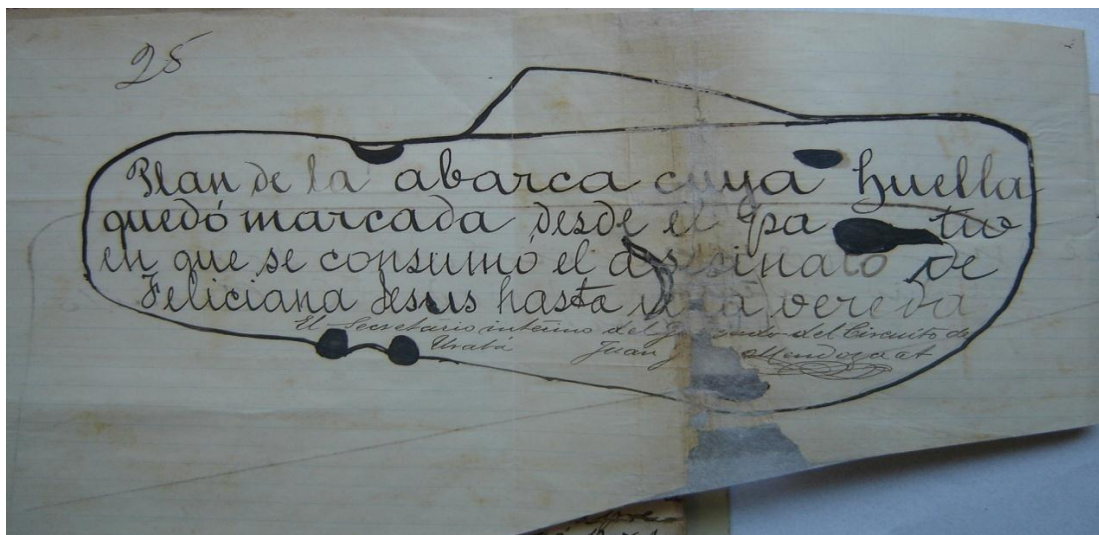 25
Plan de la abarca cuya huella
quedó marcada desde el patio
en que se consumó el asesinato de
Feliciana Jesus hasta una vereda
El Secretario interino del Juzgado del Circuito de
Urabá Juan Mendoza